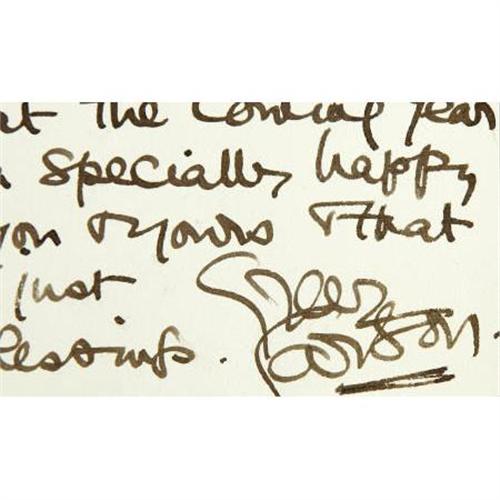 at the Coming Year
specially happy
you & yours & that
just
lessings. Greer
Garson.